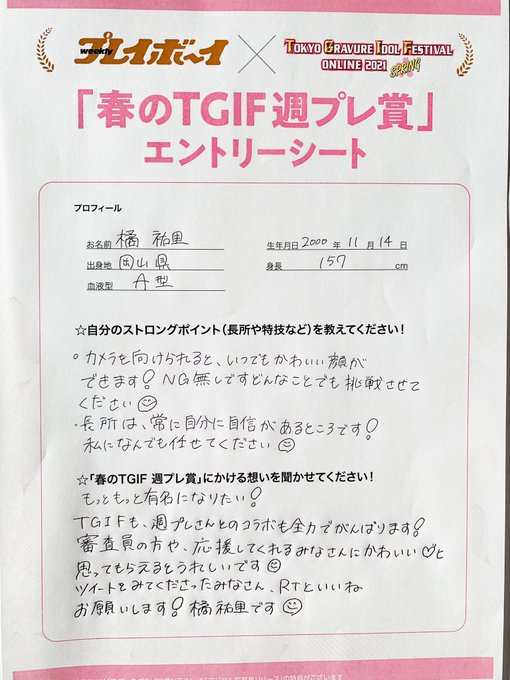 weekly プレイボーイ × TOKYO GRAVURE IDOL FESTIVAL
ONLINE 2021 SPRING
「春のTGIF 週プレ賞」
エントリーシート
プロフィール
お名前 橘 祐里 生年月日 2000 年 11 月 14 日
出身地 岡山県 身長 157 cm
血液型 A型
☆自分のストロングポイント(長所や特技など)を教えてください!
・カメラを向けられると、いつでもかわいい顔が
できます! NG無しですどんなことでも挑戦させて
ください
・長所は、常に自分に自信があるところです!
私になんでも任せてください
☆「春のTGIF 週プレ賞」にかける想いを聞かせてください!
もっともっと有名になりたい!
TGIFも、週プレさんとのコラボも全力でがんばります!
審査員の方や、応援してくれるみなさんにかわいい♡と
思ってもらえるとうれしいです
ツイートをみてくださったみなさん、RTといいね
お願いします! 橘祐里です